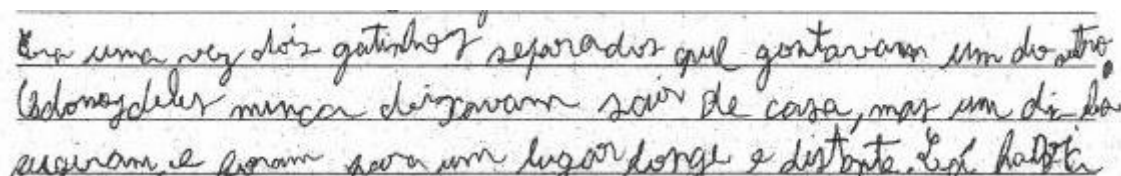 Era uma vez dois gatinhos separados que gostavam um do otro.
Os donos deles nunca deixavam sair de casa, mas um di
e foram para um lugar longe e distante.